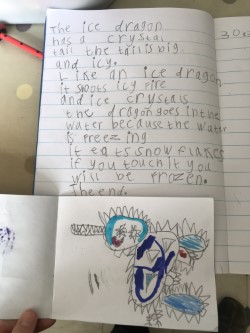 The ice dragon
has a crystal
tail the tail is big
and icy.
Like an ice dragon
it shoots icy fire
and ice crystals
the dragon goes in the
water because the water
is freezing
it eats snowflakes
if you touch it you
will be frozen.
The end.
30